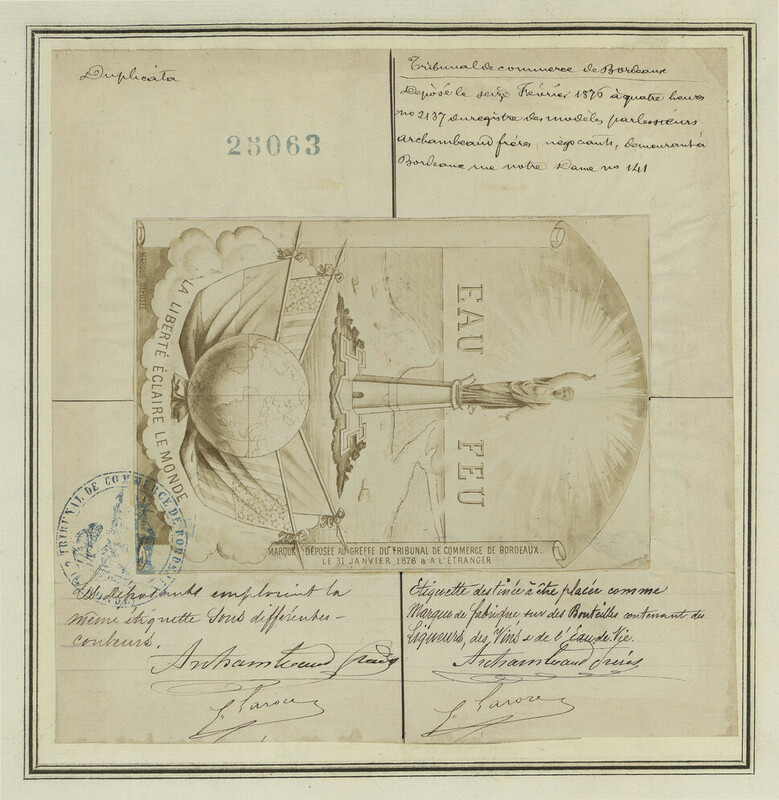 Duplicata
25063
Tribunal de commerce de Bordeaux
Déposé le seize Février 1876 à quatre heures
no 2137 du registre des modèles par messieurs
archambeaud frères, négociants, demeurant à
Bordeaux rue notre Dame no 141
MARQUE DÉPOSÉE
LA LIBERTÉ ÉCLAIRE LE MONDE
EAU FEU
MARQUE DÉPOSÉE AU GREFFE DU TRIBUNAL DE COMMERCE DE BORDEAUX.
LE 31 JANVIER 1876 & A L'ÉTRANGER
TRIBUNAL DE COMMERCE DE
Les Déposants emploient la
même étiquette sous différentes
couleurs.
Archambeaud frères
Etiquette destinée à être placée comme
Marque de fabrique sur des Bouteilles contenant des
Liqueurs, des Vins & de l'Eau de Vie.
Archambeaud frères